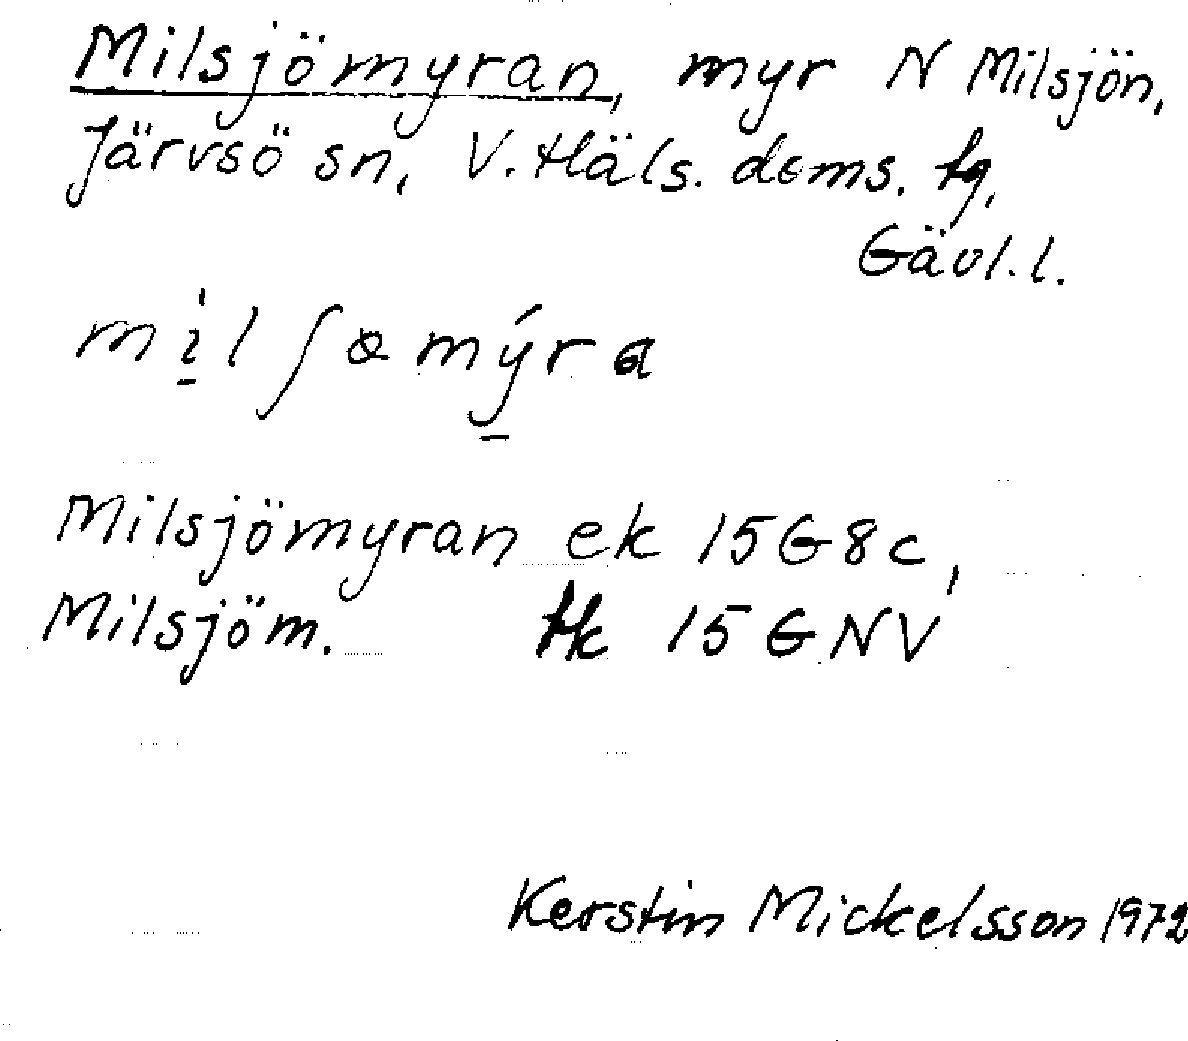 Milsjömyran, myr N Milsjön,
Järvsö sn, V. Häls. doms. tg,
Gävl. l.
mìlʃømýra
Milsjömyran ek 15G8c,
Milsjöm. tk 15GNV
Kerstin Mickelsson 1972